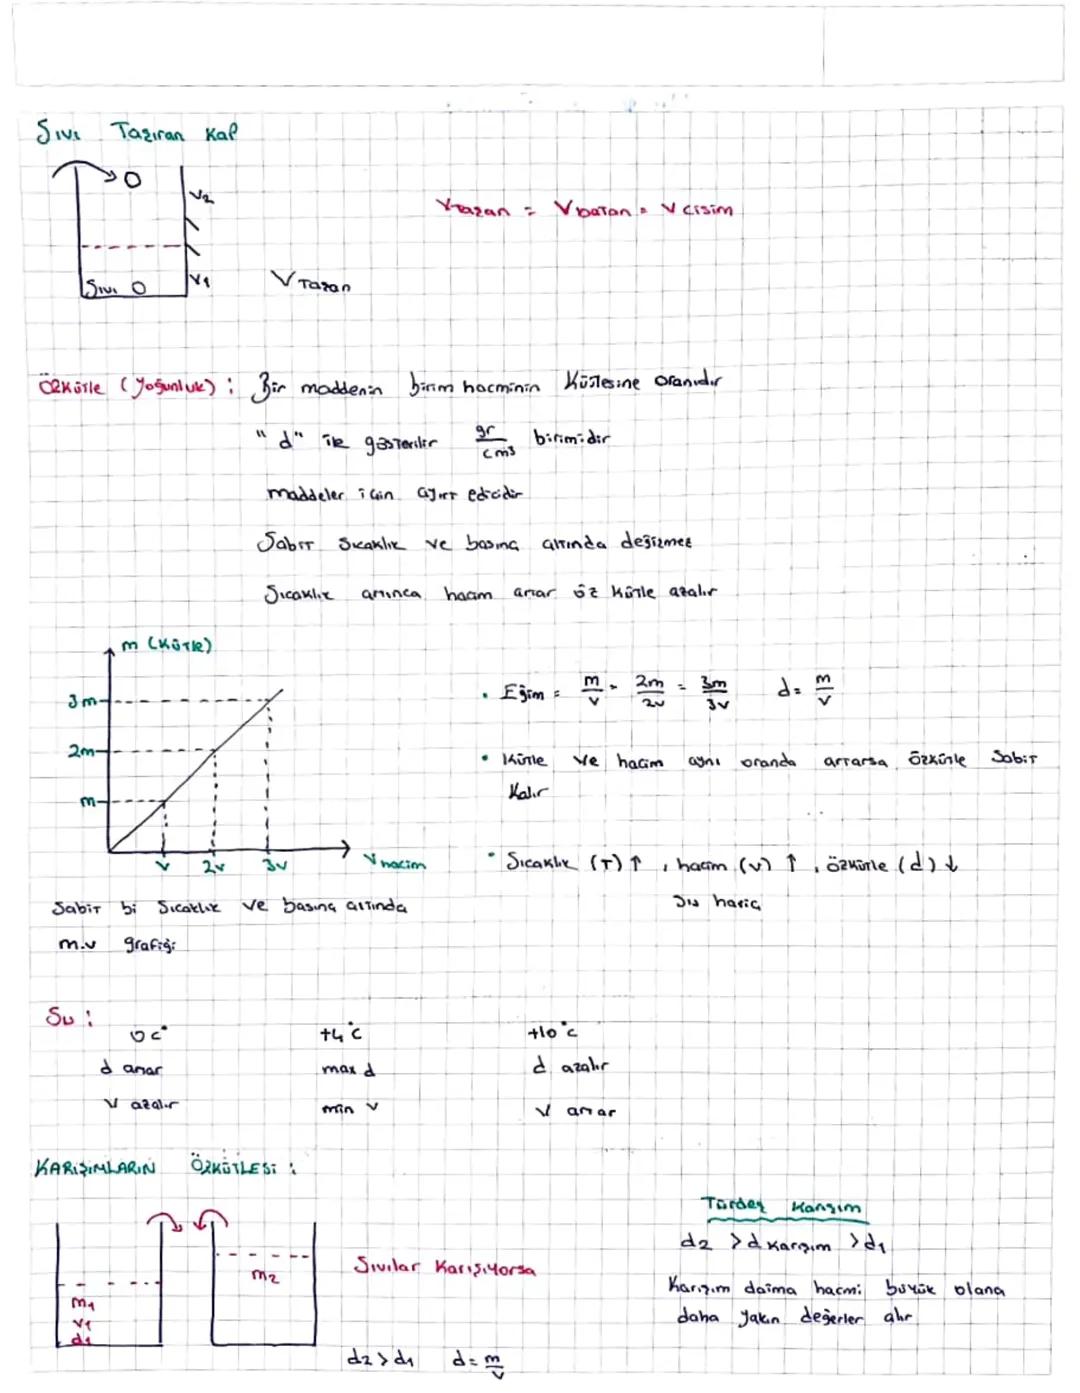 Sıvı Taşıran Kap
V2
Vtaşan = Vbatan = Vcisim
Sıvı
V1
V Taşan
Özkütle (Yoğunluk) : Bir maddenin birim hacminin kütlesine oranıdır
"d" ile gösterilir gr/cm³ birimidir
maddeler için ayırt edicidir
Sabit sıcaklık ve basınç altında değişmez
Sıcaklık artınca hacim artar öz kütle azalır
m (Kütle)
3m
2m
m
V 2v 3v V hacim
• Eğim = m/v = 2m/2v = 3m/3v d = m/v
• Kütle ve hacim aynı oranda artarsa özkütle sabit
Kalır
• Sıcaklık (T) ↑ , hacim (v) ↑ , özkütle (d) ↓
su hariç
Sabit bi sıcaklık ve basınç altında
m.v grafiği
Su :
0 c° +4°c +10°c
d artar max d d azalır
V azalır min v V artar
KARIŞIMLARIN ÖZKÜTLESİ :
m1
V1
d1
m2
Sıvılar Karışıyorsa
d2 > d1 d = m/v
Türdeş Karışım
d2 > d karışım > d1
Karışım daima hacmi büyük olana
daha yakın değerler alır